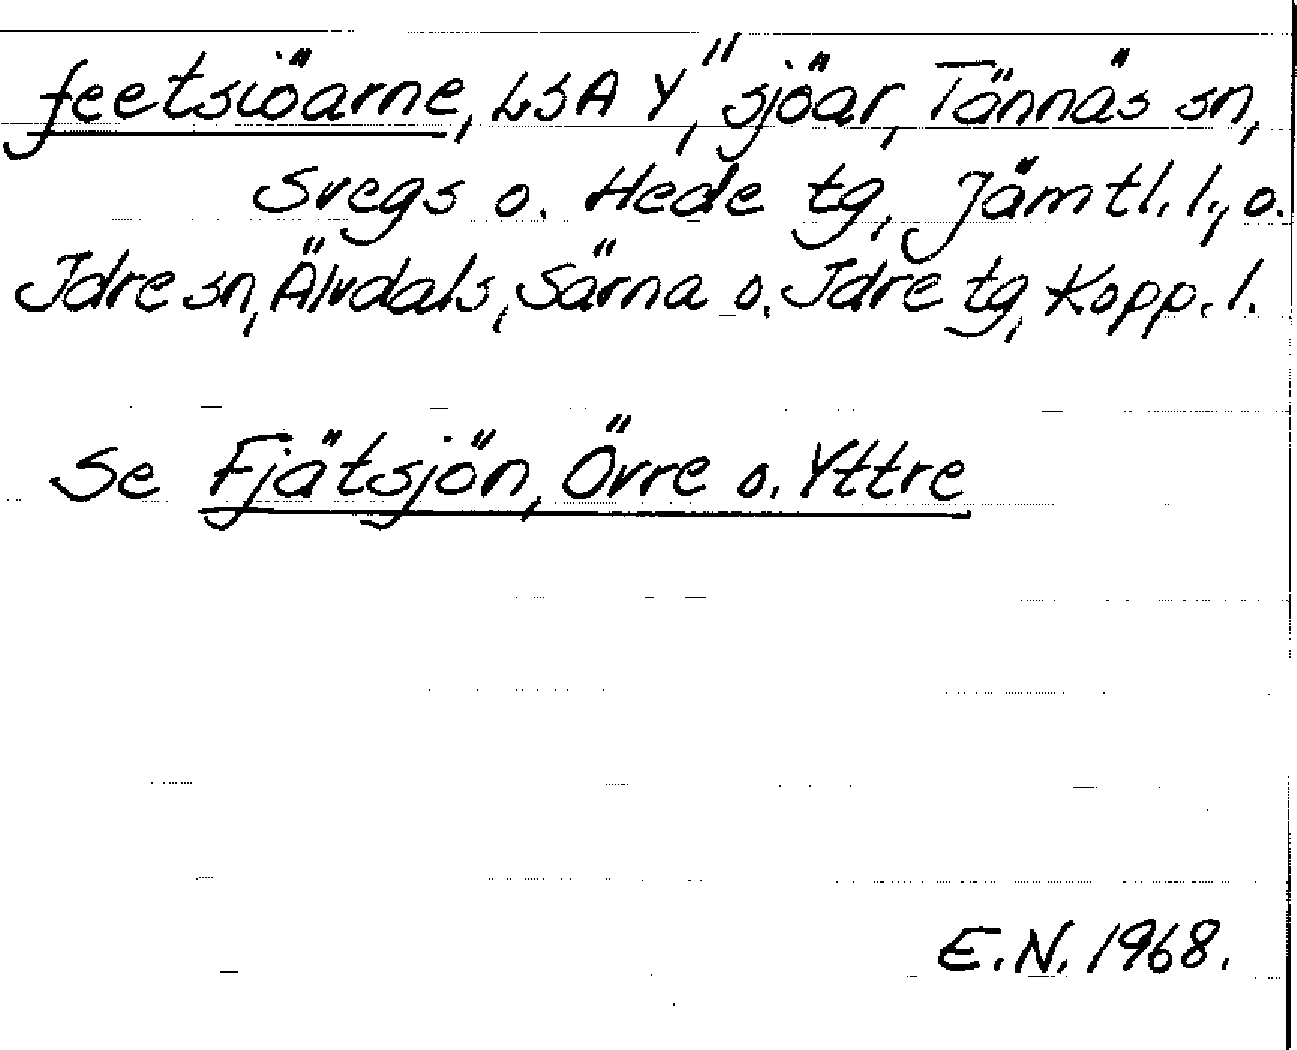 feetsiöarne, LSA Y", sjöar, Tännäs sn,
Svegs o. Hede tg, Jämtl. l., o.
Idre sn, Älvdals, Särna o. Idre tg, Kopp. l.
Se Fjätsjön, Övre o. Yttre
E.N. 1968.